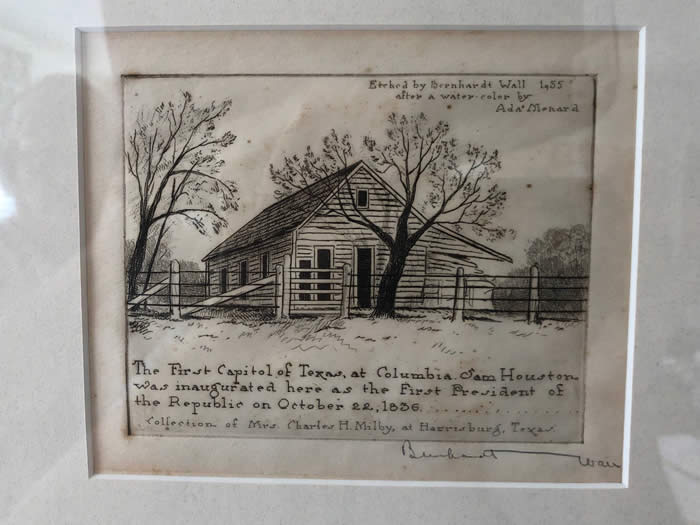 Etched by Bernhardt Wall 1955
after a water-color by
Ada Menard
The First Capitol of Texas, at Columbia. Sam Houston
was inaugurated here as the First President of
the Republic on October 22, 1836.
Collection of Mrs. Charles H. Milby, at Harrisburg, Texas.
Bernhardt Wall